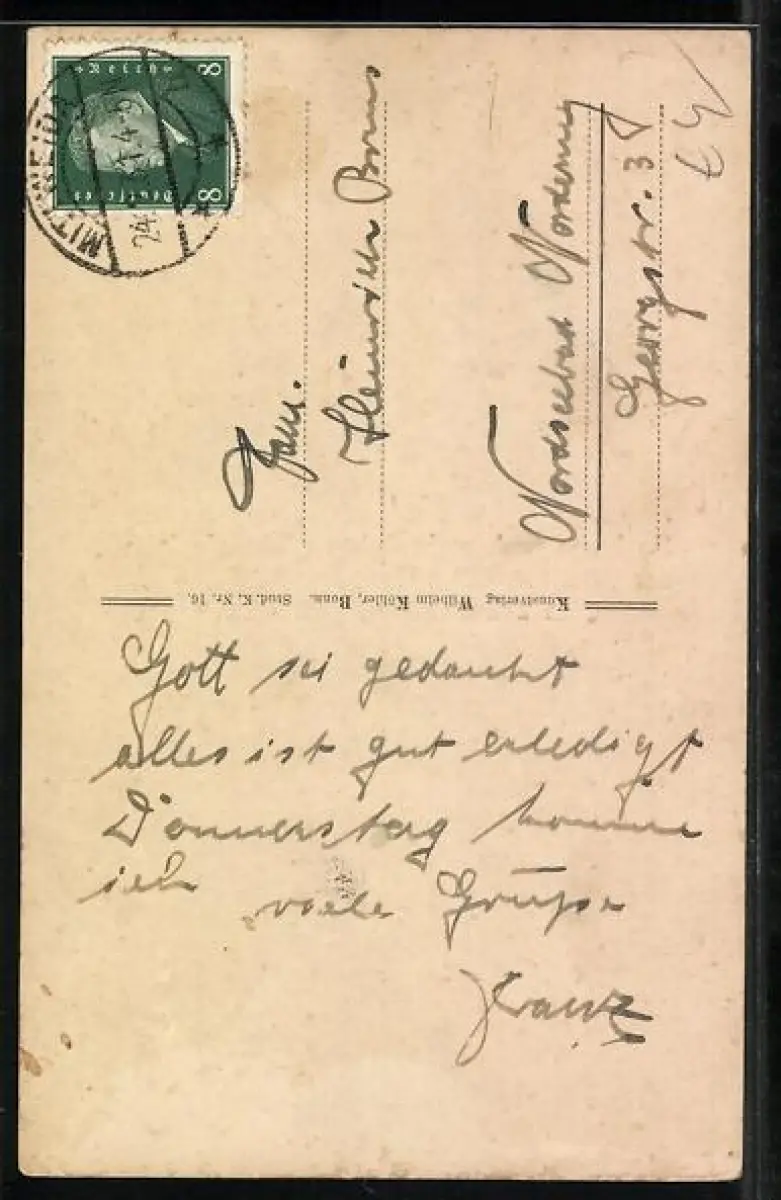 Deutsches Reich
8 8
MITTWEIDA
24.
Fam.
Heinrich Borus
Nordseebad Norderney
Georgstr. 3
Kunstverlag Wilhelm Köhler, Bonn. Stud. K. Nr. 16.
Gott sei gedankt
alles ist gut erledigt
Donnerstag komme
ich viele Grüße
Franz